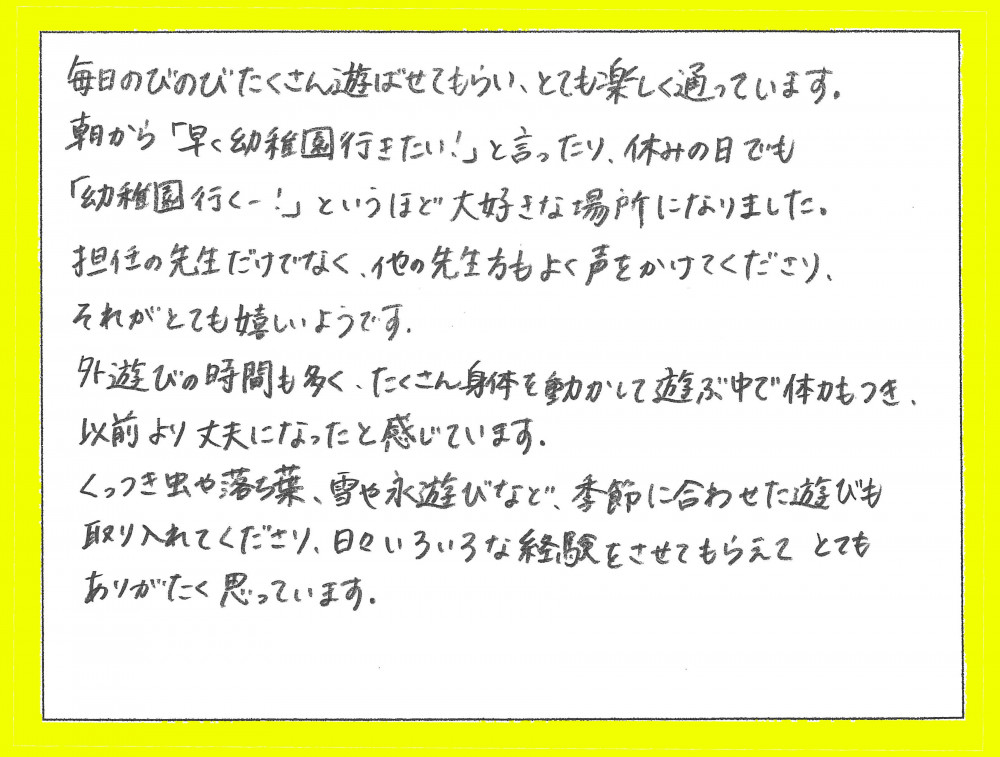 毎日のびのびたくさん遊ばせてもらい、とても楽しく通っています。
朝から「早く幼稚園行きたい!」と言ったり、休みの日でも
「幼稚園行くー!」というほど大好きな場所になりました。
担任の先生だけでなく、他の先生方もよく声をかけてくださり、
それがとても嬉しいようです。
外遊びの時間も多く、たくさん身体を動かして遊ぶ中で体力もつき、
以前より丈夫になったと感じています。
くっつき虫や落ち葉、雪や氷遊びなど、季節に合わせた遊びも
取り入れてくださり、日々いろいろな経験をさせてもらえて とても
ありがたく思っています。